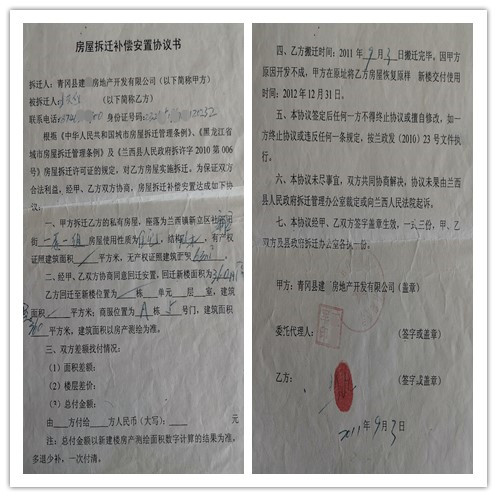 房屋拆迁补偿安置协议书
拆迁人：青冈县建 房地产开发有限公司（以下简称甲方）
被拆迁人： （以下简称乙方）
联系电话： 身份证号码：
根据《中华人民共和国城市房屋拆迁管理条例》、《黑龙江省
城市房屋拆迁管理条例》及《兰西县人民政府拆许字 2010 第 006
号》房屋拆迁许可证的规定，对乙方房屋实施拆迁。为保证双方
合法利益，经甲、乙方双方协商，房屋拆迁补偿安置达成如下协
议：
一、甲方拆迁乙方的私有房屋，座落为兰西镇新立区社
街 一委一组 房屋使用性质为 结构 有产权
证照建筑面积 平方米，无产权证照建筑面积
二、经甲、乙双方协商同意回迁安置，回迁新楼面积为
乙方回迁至新楼位置为 栋 单元 层 室，建筑
面积 平方米；商服位置为 A 栋 5 号门，建筑面积
平方米，建筑面积以房产测绘为准。
三、双方差额找付情况：
（1）面积差额：
（2）楼层差价：
（3）总付金额：
由 方付给 方人民币（大写）： 元
注：总付金额以新建楼房产测绘面积数字计算的结果为准，
多退少补，一次付清。
四、乙方搬迁时间：2011 年 9 月 3 日搬迁完毕，因甲方
原因开发不成，甲方在原址将乙方房屋恢复原样 新楼交付使用
时间：2012 年 12 月 31 日。
五、本协议签定后任何一方不得终止协议或擅自修改，如一
方终止协议或违反任何一条规定，按兰政发（2010）23 号文件执
行。
六、本协议未尽事宜，双方共同协商解决，协议未果由兰西
县人民政府拆迁管理办公室裁定或向兰西人民法院起诉。
七、本协议经甲、乙双方签字盖章生效，一式三份，甲、乙
双方及县政府拆迁办公室各执一份。
甲方：青冈县建 房地产开发有限公司（盖章）
委托代理人： （签字或盖章）
乙方： （签字或盖章）
2011 年 9 月 3 日